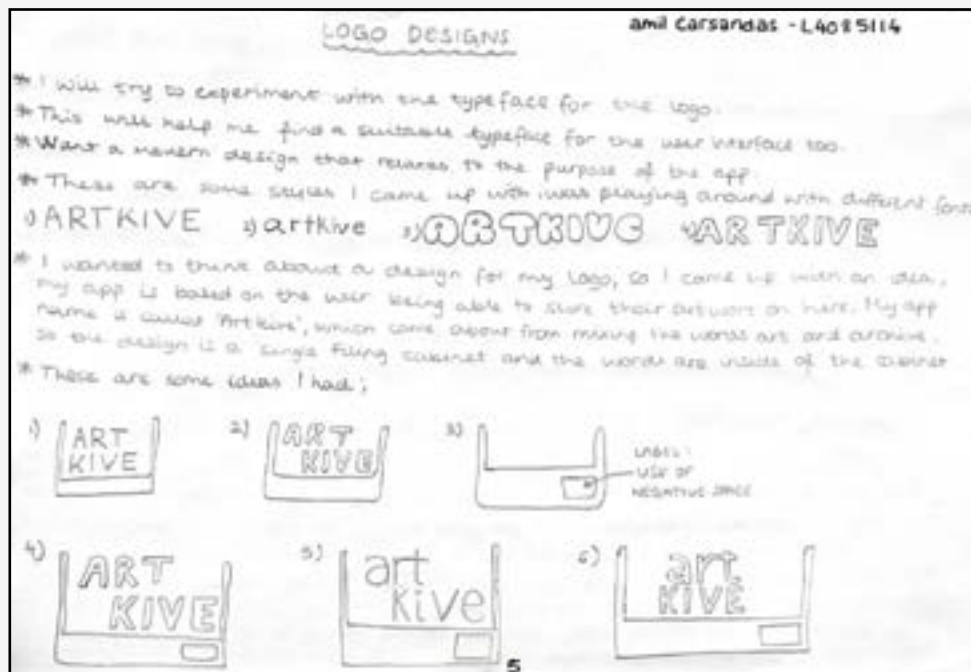 LOGO DESIGNS
amil Carsandas - L4085114
* I will try to experiment with the typeface for the logo.
* This will help me find a suitable typeface for the user interface too.
* Want a modern design that relates to the purpose of the app.
* These are some styles I came up with i was playing around with different fonts
1) ARTKIVE 2) artkive 3) ARTKIVE 4) ARTKIVE
* I wanted to think about a design for my logo, so I came up with an idea.
My app is based on the user being able to store their artwork on here. My app
name is called 'Artkive', which came about from mixing the words art and archive.
So the design is a single filing cabinet and the words are inside of the cabinet
* These are some ideas I had;
1) ART
KIVE
2) ART
KIVE
3)
LABEL:
USE OF
NEGATIVE SPACE
4) ART
KIVE
5) art
kive
6) art
KIVE
5